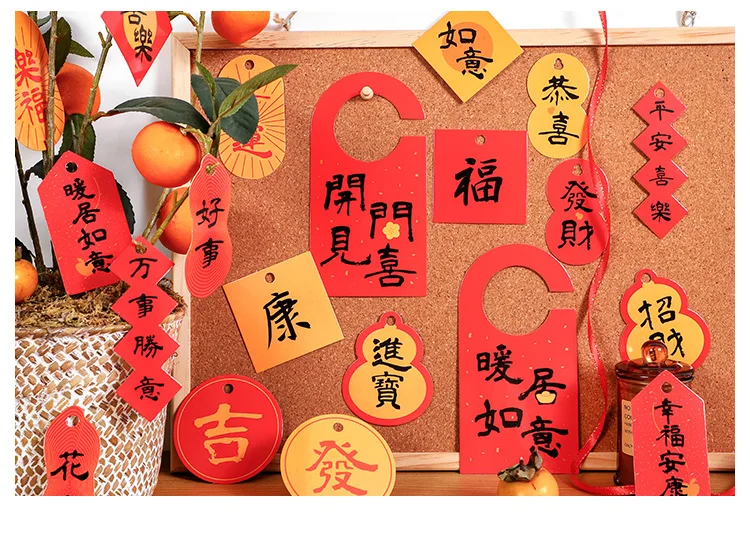 喜樂
樂福
運
如意
恭喜
平安喜樂
開門
見喜
福
發財
暖居
如意
好事
万事勝意
康
進寶
招財
暖居
如意
吉
發
花
幸福安康